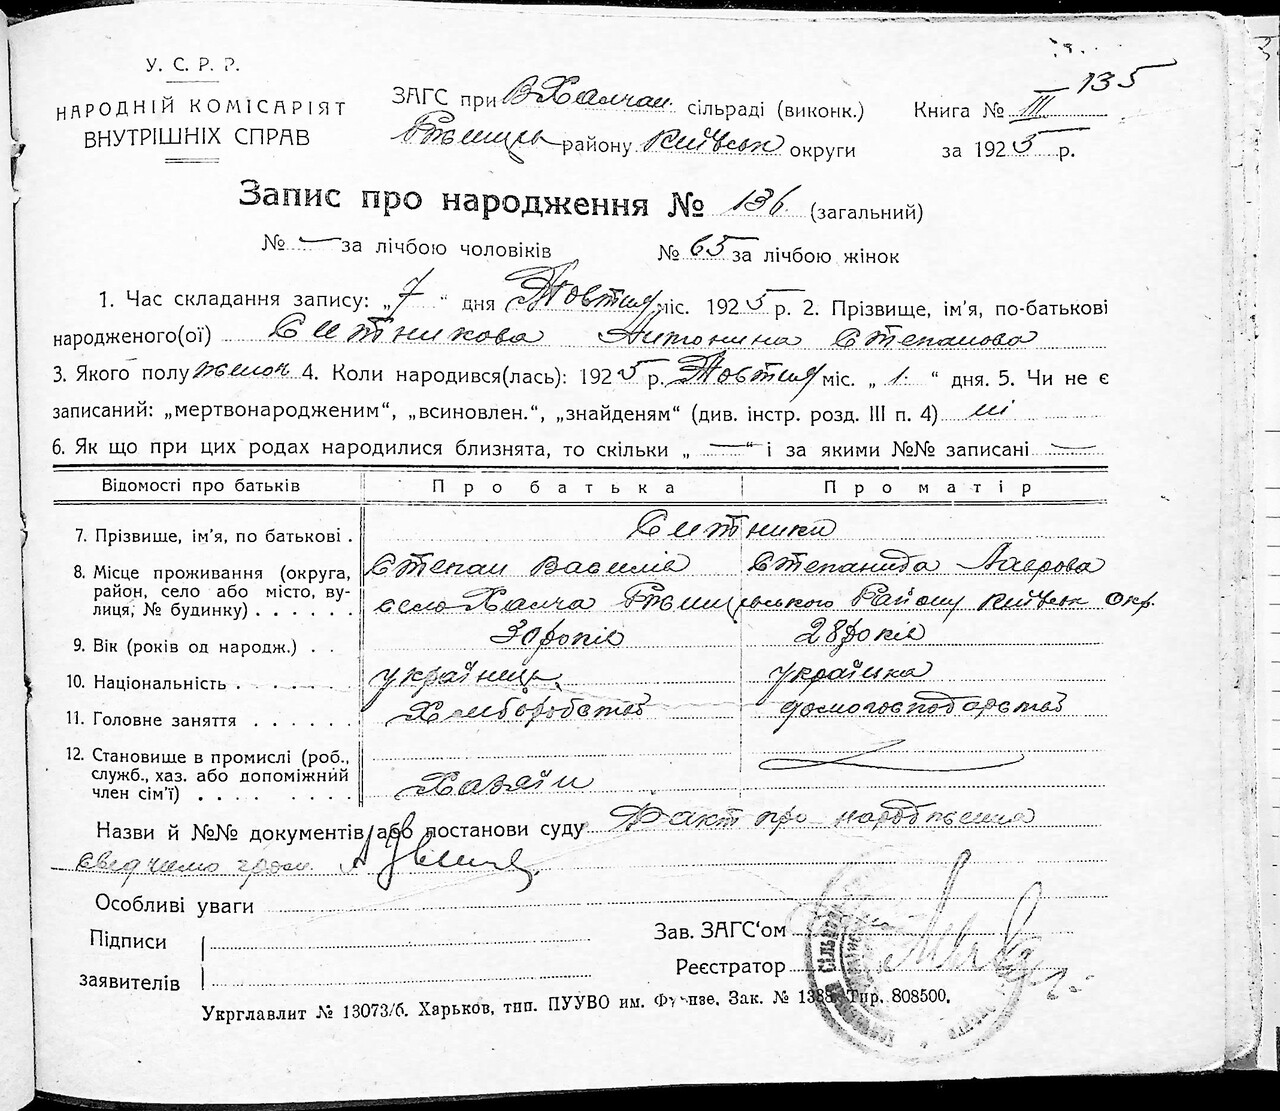 135
У. С. Р. Р.
НАРОДНІЙ КОМІСАРІЯТ
ВНУТРІШНІХ СПРАВ
ЗАГС при В Халчан сільраді (виконк.)
Ржищ район у Київськ округи
Книга № III
за 1925 р.
Запис про народження № 136 (загальний)
№ — за лічбою чоловіків № 65 за лічбою жінок
1. Час складання запису: „7“ дня Жовтня міс. 1925 р. 2. Прізвище, ім'я, по-батькові
народженого(ої) Ситникова Антонина Степанова
3. Якого полу женоч 4. Коли народився(лась): 1925 р. Жовтня міс. „1“ дня. 5. Чи не є
записаний: „мертвонародженим“, „всиновлен.“, „знайденям“ (див. інстр. розд. III п. 4) ні
6. Як що при цих родах народилися близнята, то скільки „—“ і за якими №№ записані —
Відомості про батьків Про батька Про матір
7. Прізвище, ім'я, по батькові . Ситники
Степан Василів Степанида Лаврова
8. Місце проживання (округа,
район, село або місто, ву-
лиця, № будинку) . . . . . . село Халча Ржищевського Району Київськ Окр.
9. Вік (років од народж.) . . 30 років 28 років
10. Національність . . . . . . українець українка
11. Головне заняття . . . . . . Хліборобство домогосподарство
12. Становище в промислі (роб.,
служб., хаз. або допоміжний
член сім'ї) . . . . . . . . Хазяїн
Назви й №№ документів або постанови суду Факт про народження
свідчимо гром.
Особливі уваги
Підписи
заявителів
Зав. ЗАГС'ом
Реєстратор
Укрглавлит № 13073/б. Харьков, тип. ПУУВО им. Фрунзе. Зак. № 1388. Тир. 808500.